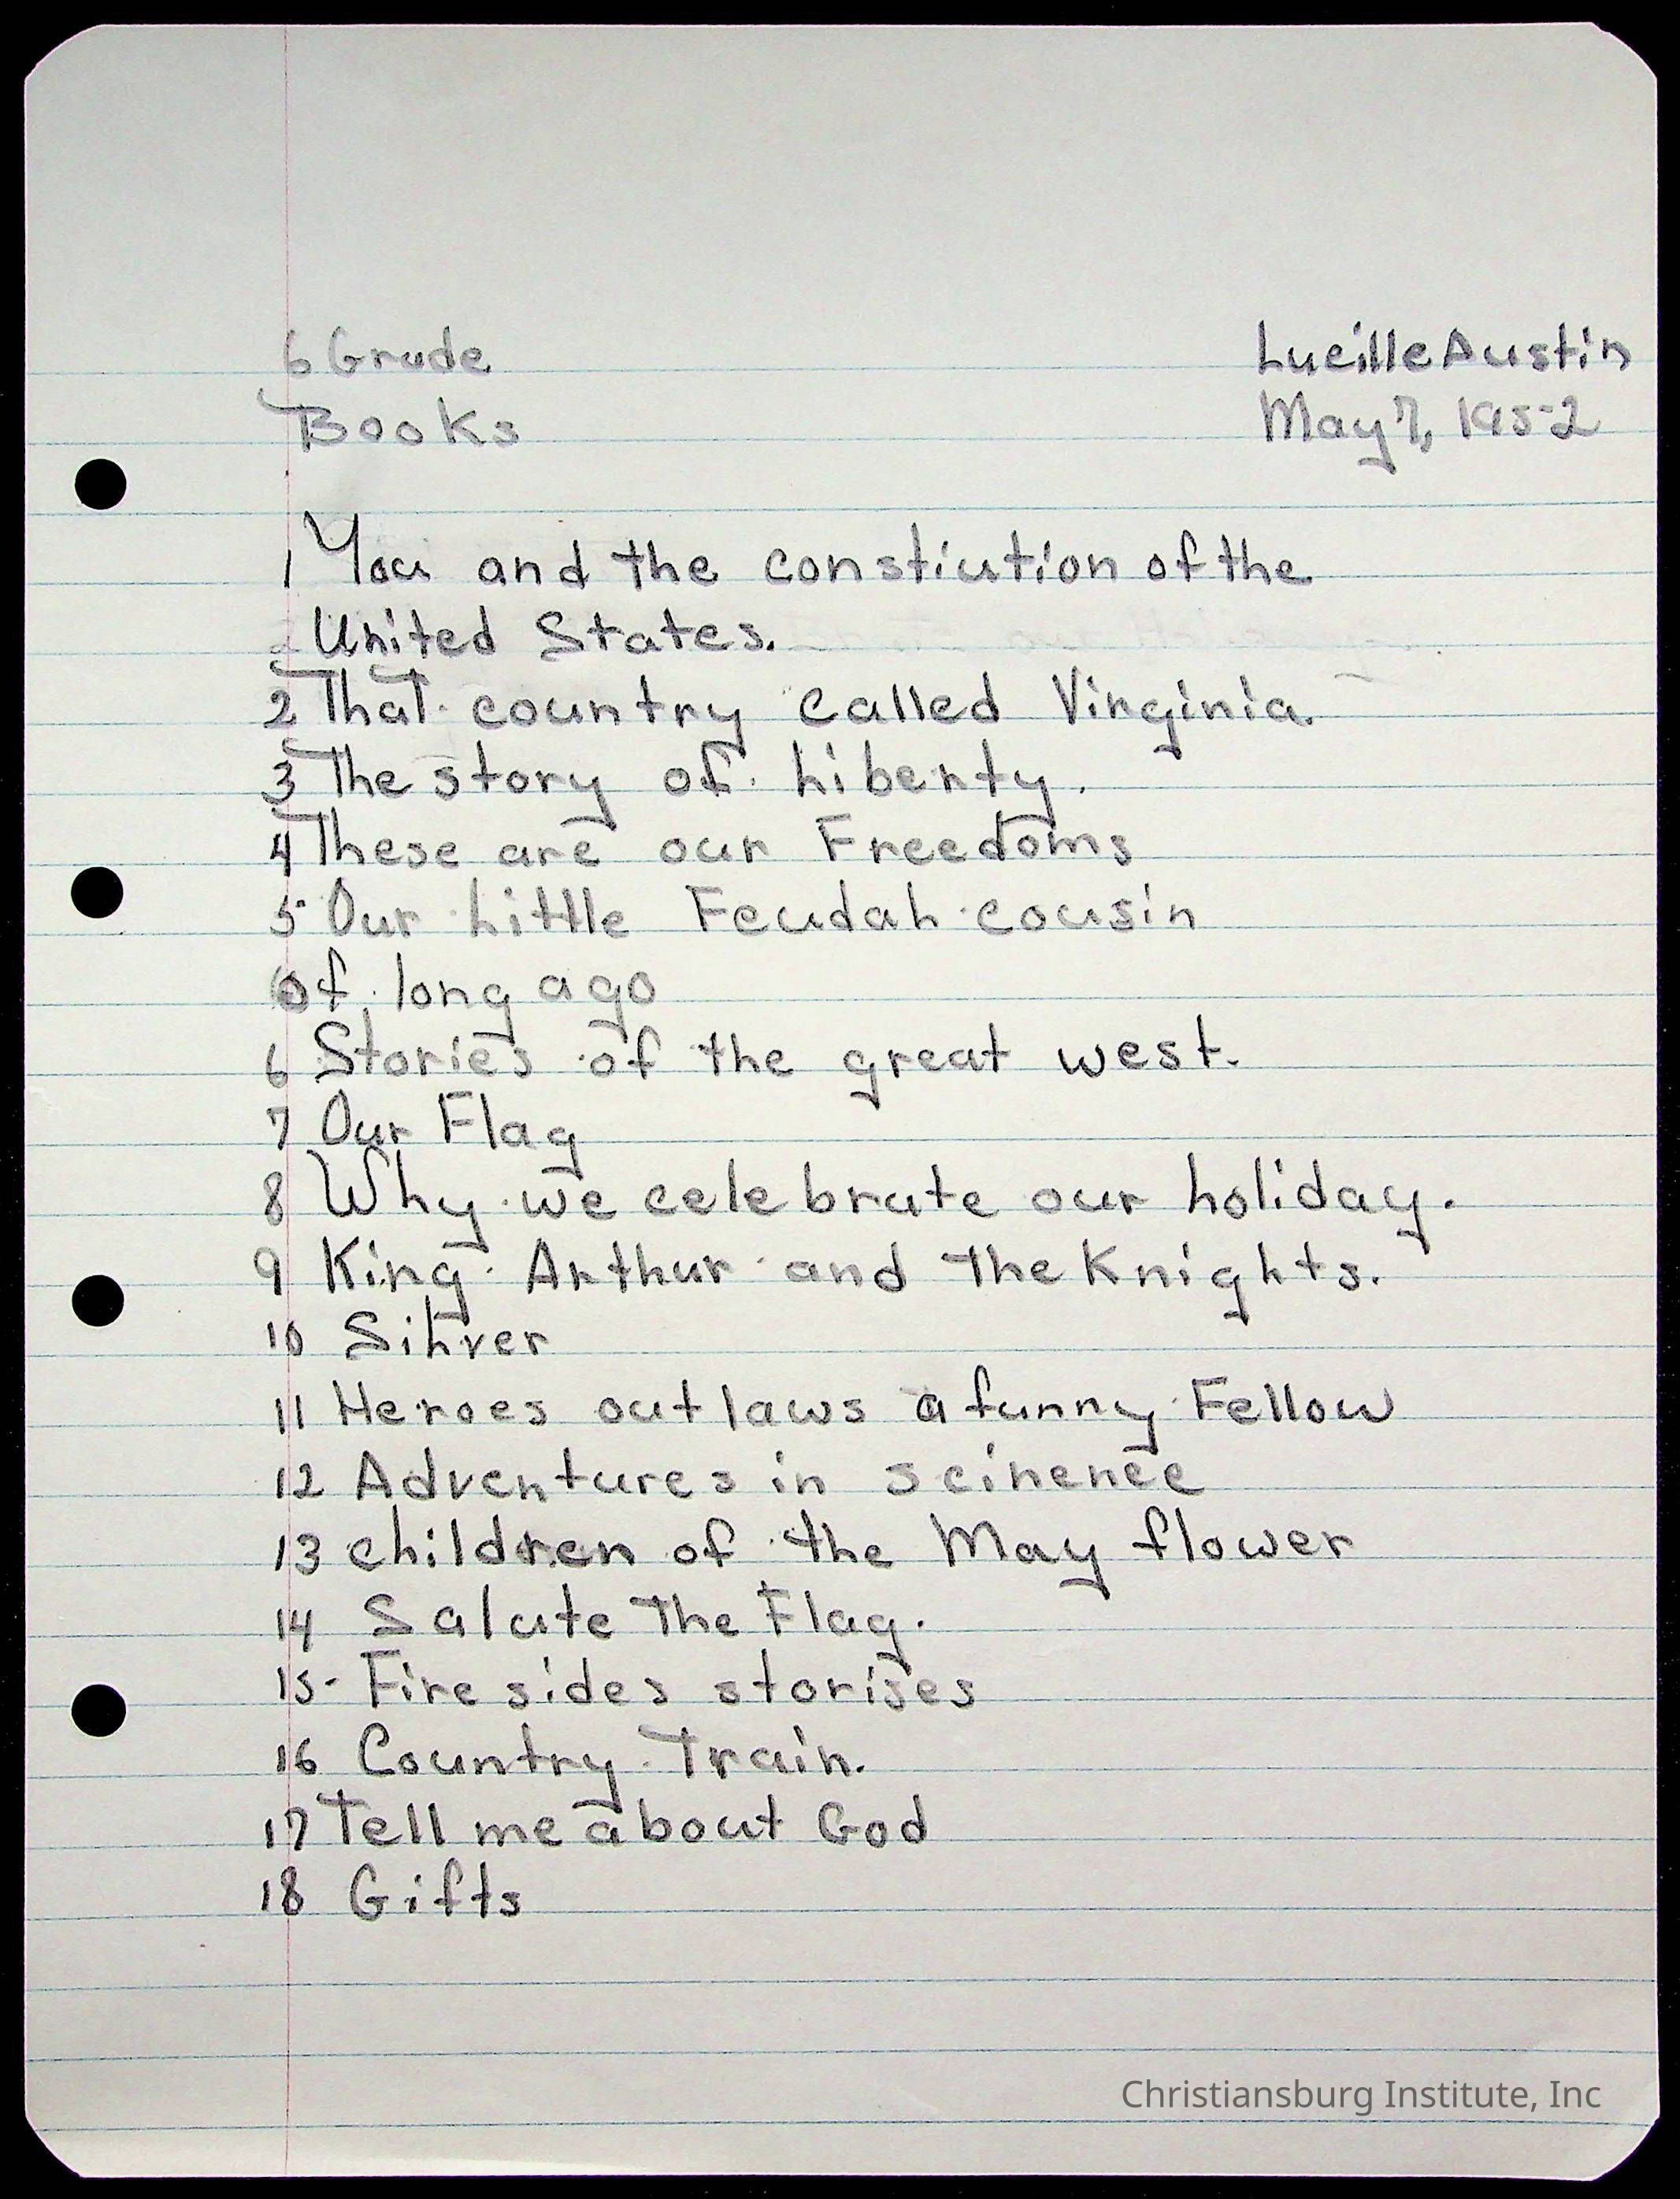 6 Grade
Lucille Austin
Books
May 7, 1952
1 You and the constiution of the
United States.
2 That country called Virginia.
3 The story of Liberty.
4 These are our Freedoms
5 Our Little Feudal cousin
of long ago
6 Stories of the great west.
7 Our Flag
8 Why we celebrate our holiday.
9 King Arthur and the Knights.
10 Silver
11 Heroes outlaws a funny Fellow
12 Adventures in scinence
13 children of the May flower
14 Salute the Flag.
15 Fire sides storises
16 Country Train.
17 Tell me about God
18 Gifts
Christiansburg Institute, Inc